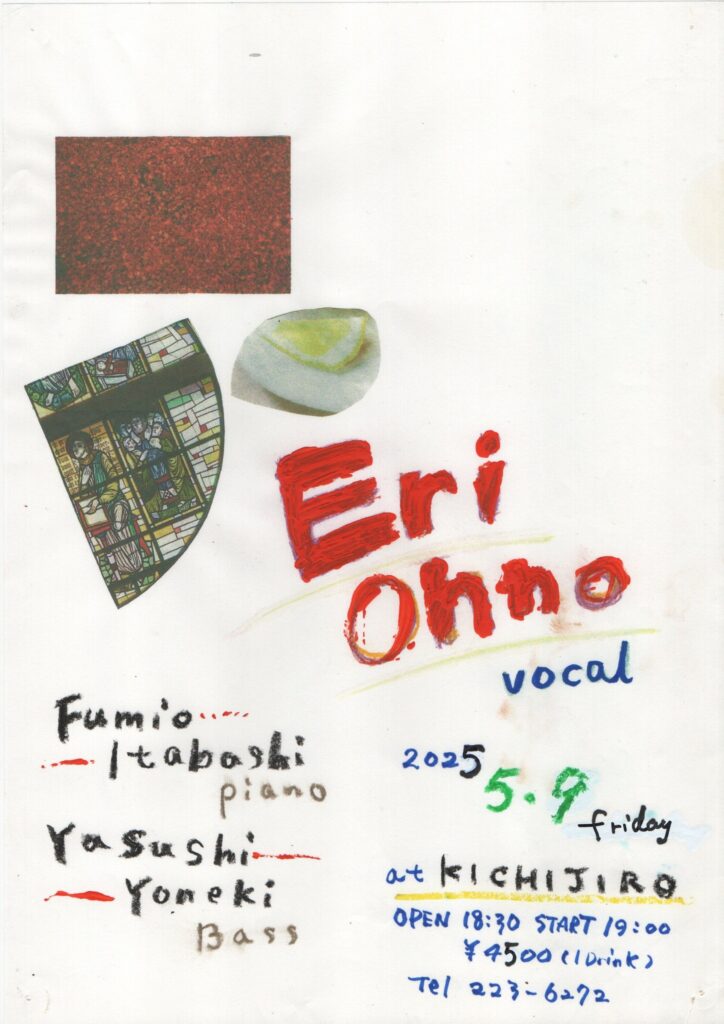 Eri
Ohno
vocal
Fumio
Itabashi
piano
Yasushi
Yoneki
Bass
2025
5.9
friday
at KICHIJIRO
OPEN 18:30 START 19:00
¥4500 (1 Drink)
Tel 223-6272